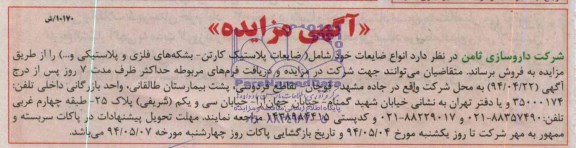 ۱۰۱۷۰/ش
«آگهی مزایده»
شرکت داروسازی ثامن در نظر دارد انواع ضایعات خود شامل( ضایعات پلاستیک کارتن- بشکه‌های فلزی و پلاستیکی و...) را از طریق
مزایده به فروش برساند. متقاضیان می‌توانند جهت شرکت در مزایده و دریافت فرم‌های مربوطه حداکثر ظرف مدت ۷ روز پس از درج
آگهی (۹۴/۰۴/۲۲) به محل شرکت واقع در جاده مشهد فردوسی، پشت بیمارستان طالقانی، واحد بازرگانی داخلی تلفن:
۳۵۰۰۰۱۷۴ و یا دفتر تهران به نشانی خیابان شهید گمنام، خیابان جهان آرا، خیابان سی و یکم (شریفی) پلاک ۲۵- طبقه چهارم غربی
تلفن: ۸۸۳۵۷۴۹۰-۰۲۱ و ۸۸۲۲۹۰۱۷-۰۲۱ و کدپستی ۱۴۳۸۹۸۴۴۱۵ مراجعه نمایند. مهلت تحویل پیشنهادات در پاکات سربسته و
ممهور به مهر شرکت تا روز یکشنبه مورخ ۹۴/۰۵/۰۴ و تاریخ بازگشایی پاکات روز چهارشنبه مورخه ۹۴/۰۵/۰۷ می‌باشد.